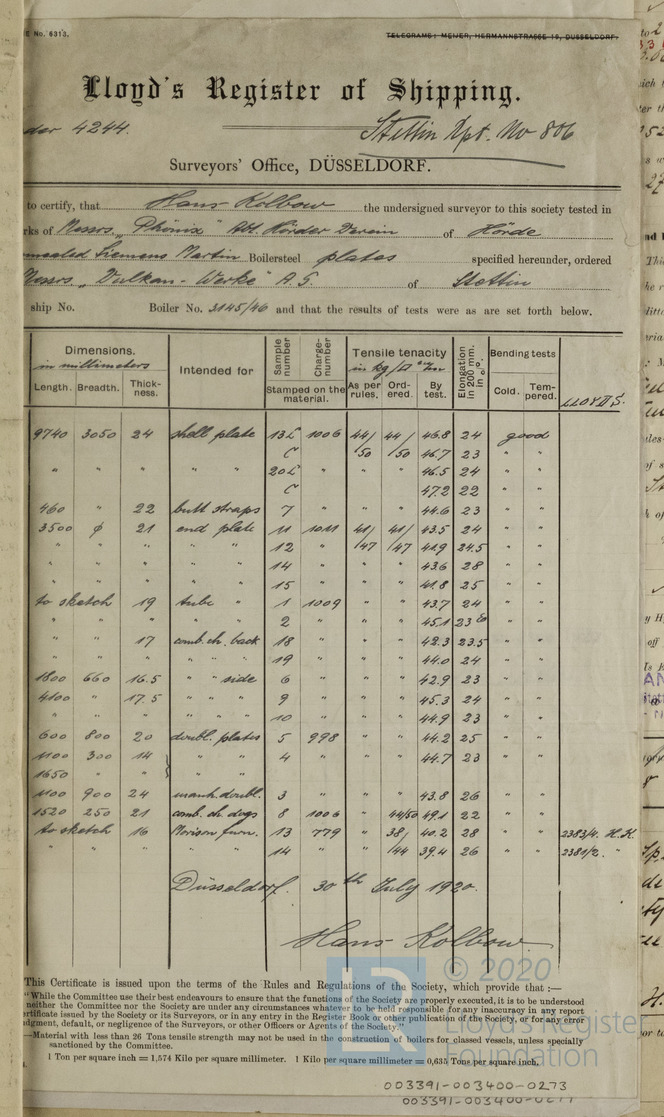 E No. 6313.
TELEGRAMS: MEIJER, HERMANNSTRASSE 10, DUSSELDORF.
Lloyd's Register of Shipping.
der 4244.
Stettin Rpt. No 806
Surveyors' Office, DÜSSELDORF.
to certify, that Hans Kolbow the undersigned surveyor to this society tested in
rks of Messrs „Phönix" Abt. Hörder Verein of Hörde
nnealed Siemens Martin Boilersteel plates specified hereunder, ordered
Messrs „Vulkan-Werke" A.G. of Stettin
ship No. Boiler No. 3145/46 and that the results of tests were as are set forth below.
Dimensions. in millimeters Length. Breadth. Thick-ness. Intended for Sample number Charge-number Stamped on the material. Tensile tenacity in kg/□ As per rules. Ord-ered. By test. Elongation in 200 mm. in %. Bending tests Cold. Tem-pered. LLOYD'S.
9740 3050 24 shell plate 13 L 1006 44/ 44/ 46.8 24 good
C /50 /50 46.7 23 " "
" " " " " 20 L " " " 46.5 24 " "
C 47.2 22 " "
460 " 22 butt straps 7 " " " 44.6 23 " "
3500 φ 21 end plate 11 1011 41/ 41/ 43.5 24 " "
" " " " " 12 " /47 /47 41.9 24.5 " "
" " " " " 14 " " " 43.6 28 " "
" " " " " 15 " " " 41.8 25 " "
to sketch 19 tube " 1 1009 " " 43.7 24 " "
" " " " " 2 " " " 45.1 23 " "
" " 17 comb. ch. back 18 " " " 42.3 23.5 " "
" " " " " " 19 " " " 44.0 24 " "
1800 660 16.5 " " side 6 " " " 42.9 23 " "
4100 " 17.5 " " " 9 " " " 45.3 24 " "
" " " " " " 10 " " " 44.9 23 " "
600 800 20 doubl. plates 5 998 " " 44.2 25 " "
1100 300 14 } " " 4 " " " 44.7 23 " "
1650 " " " "
1100 900 24 manh. doubl. 3 " " " 43.8 26 " "
1520 250 21 comb. ch. dogs 8 1006 " 44/50 49.1 22 " "
to sketch 16 Morison furn. 13 779 " 38/ 40.2 28 " " 2383/4. H.K.
" " " " " 14 " " /44 39.4 26 " " 2381/2. "
Düsseldorf. 30th July 1920.
Hans Kolbow
This Certificate is issued upon the terms of the Rules and Regulations of the Society, which provide that:—
"While the Committee use their best endeavours to ensure that the functions of the Society are properly executed, it is to be understood
neither the Committee nor the Society are under any circumstances whatever to be held responsible for any inaccuracy in any report
rtificate issued by the Society or its Surveyors, or in any entry in the Register Book or other publication of the Society, or for any error
dgment, default, or negligence of the Surveyors, or other Officers or Agents of the Society."
—Material with less than 26 Tons tensile strength may not be used in the construction of boilers for classed vessels, unless specially
sanctioned by the Committee.
1 Ton per square inch = 1,574 Kilo per square millimeter. 1 Kilo per square millimetre = 0,635 Tons per square inch.
© 2020
Lloyd's Register
Foundation
003391-003400-0273
003391-003400-0271